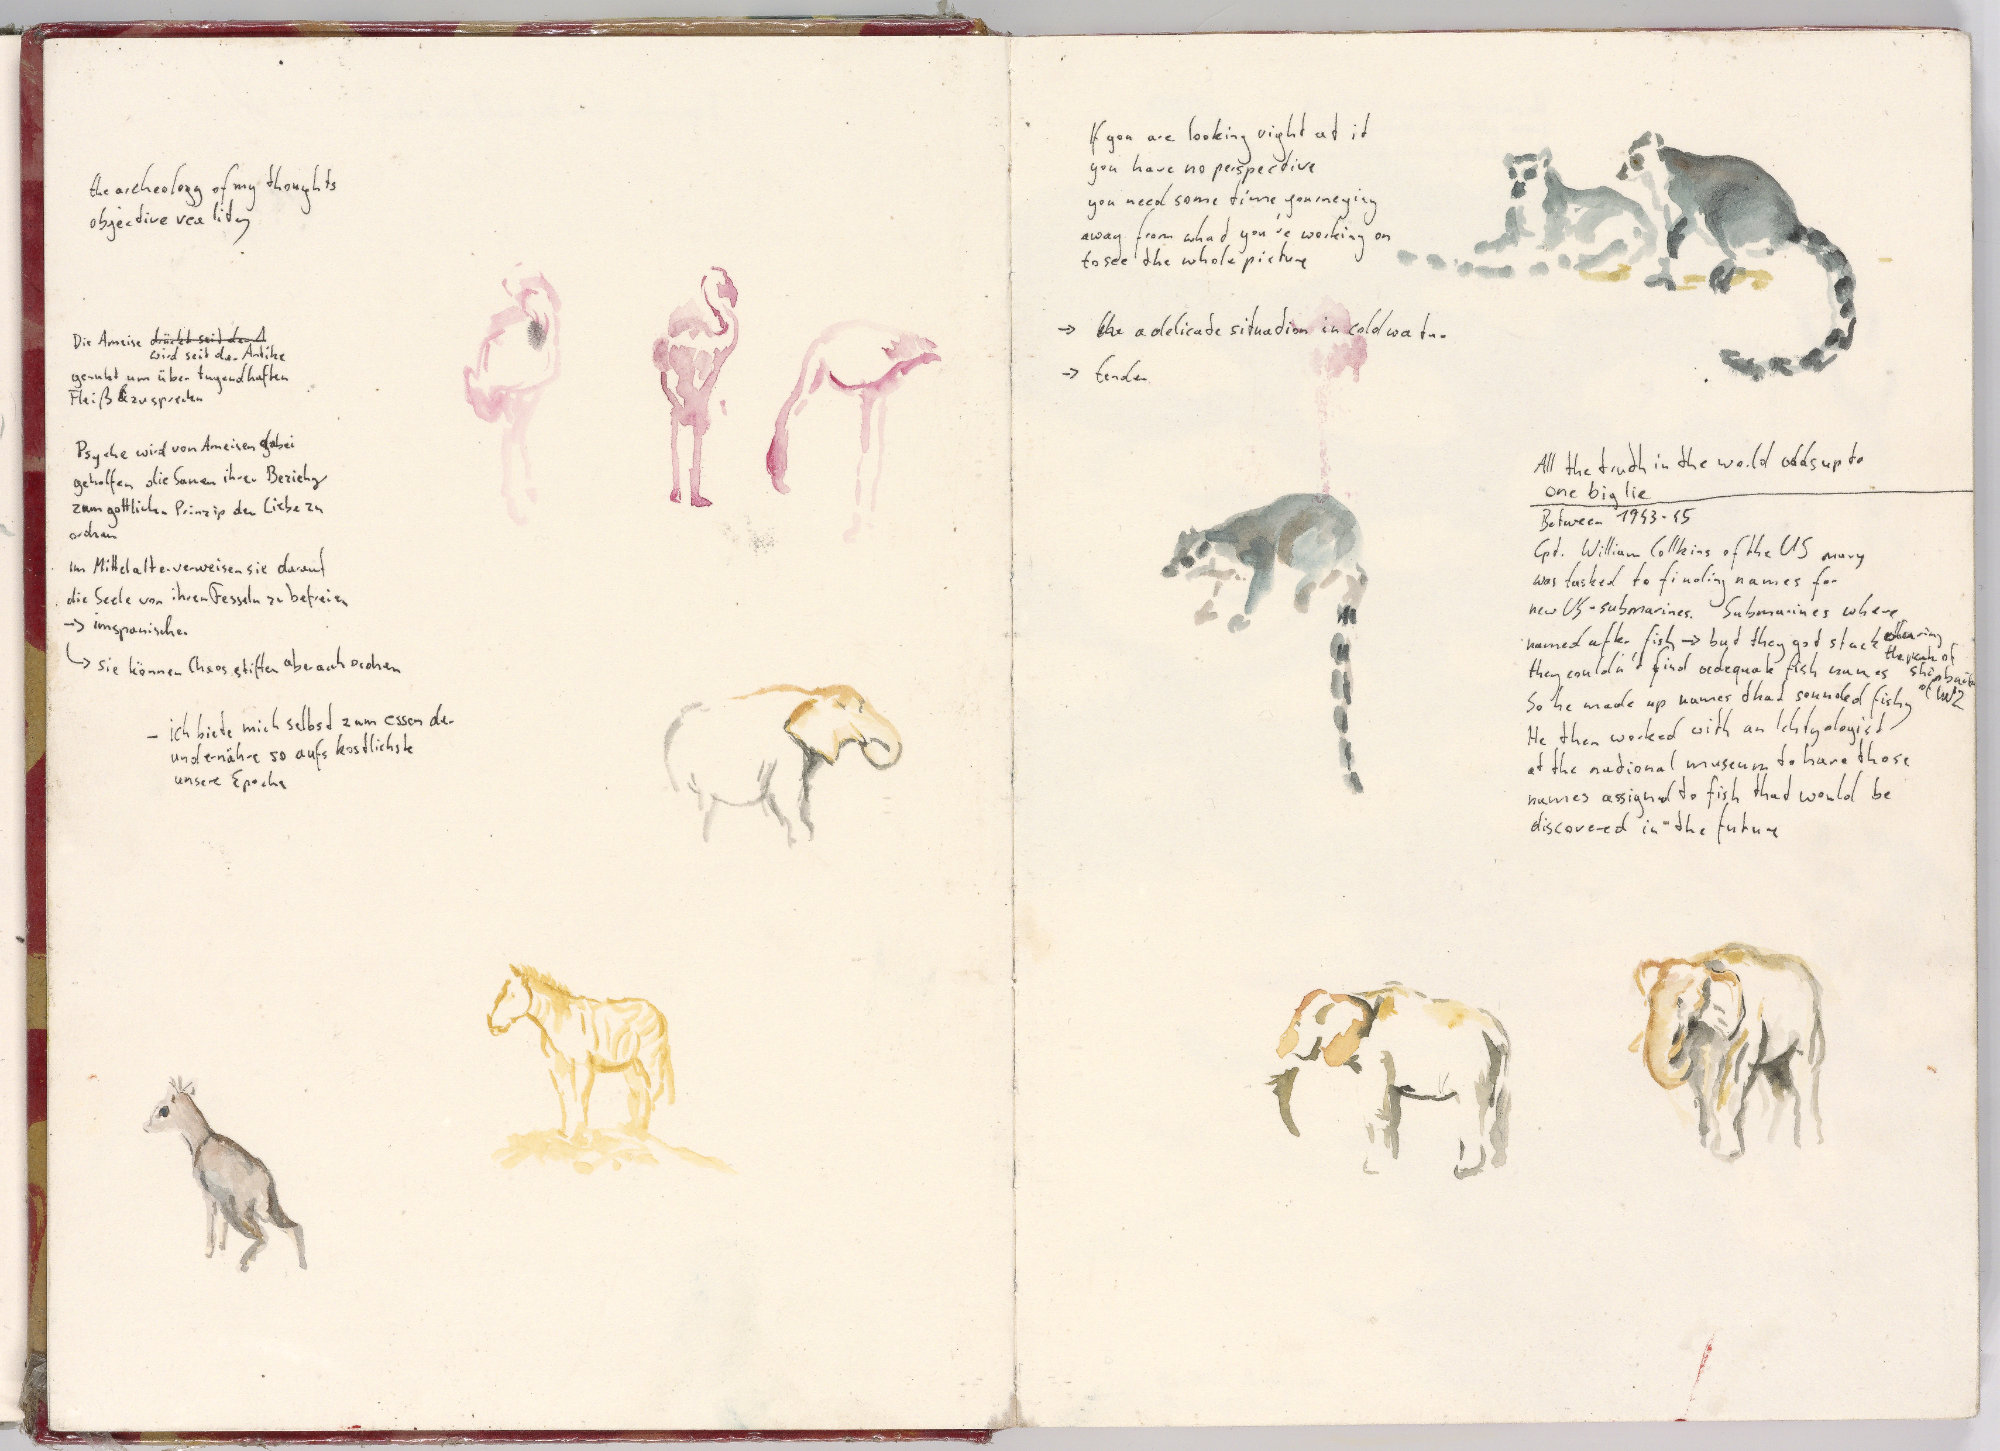 the archeology of my thoughts
objective reality
Die Ameise drückt seit der A
wird seit der Antike
genutzt um über tugendhaften
Fleiß zu sprechen
Psyche wird von Ameisen dabei
geholfen die Samen ihrer Beziehg
zum göttlichen Prinzip der Liebe zu
ordnen
im Mittelalter verweisen sie darauf
die Seele von ihren Fesseln zu befreien
-> im spanischen
-> sie können Chaos stiften aber auch ordnen
- ich biete mich selbst zum essen der
und ernähre so aufs köstlichste
unsere Epoche
If you are looking right at it
you have no perspective
you need some time yourneying
away from what you're working on
to see the whole picture
-> the a delicate situation in cold water
->
All the truth in the world adds up to
one big lie
Between 1943-45
Cpt. William Collkins of the US navy
was tasked to finding names for
new US-submarines. Submarines where
named after fish -> but they got stuck during
the peak of
they couldn't find adequate fish names shipbuild
of WW2
So he made up names that sounded fishy
He then worked with an Ichtyologist
at the national museum to have those
names assigned to fish that would be
discovered in the future